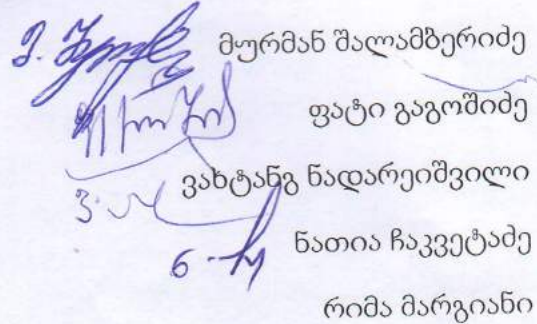 მურმან შალამბერიძე
ფატი გაგოშიძე
ვახტანგ ნადარეიშვილი
ნათია ჩაკვეტაძე
რიმა მარგიანი